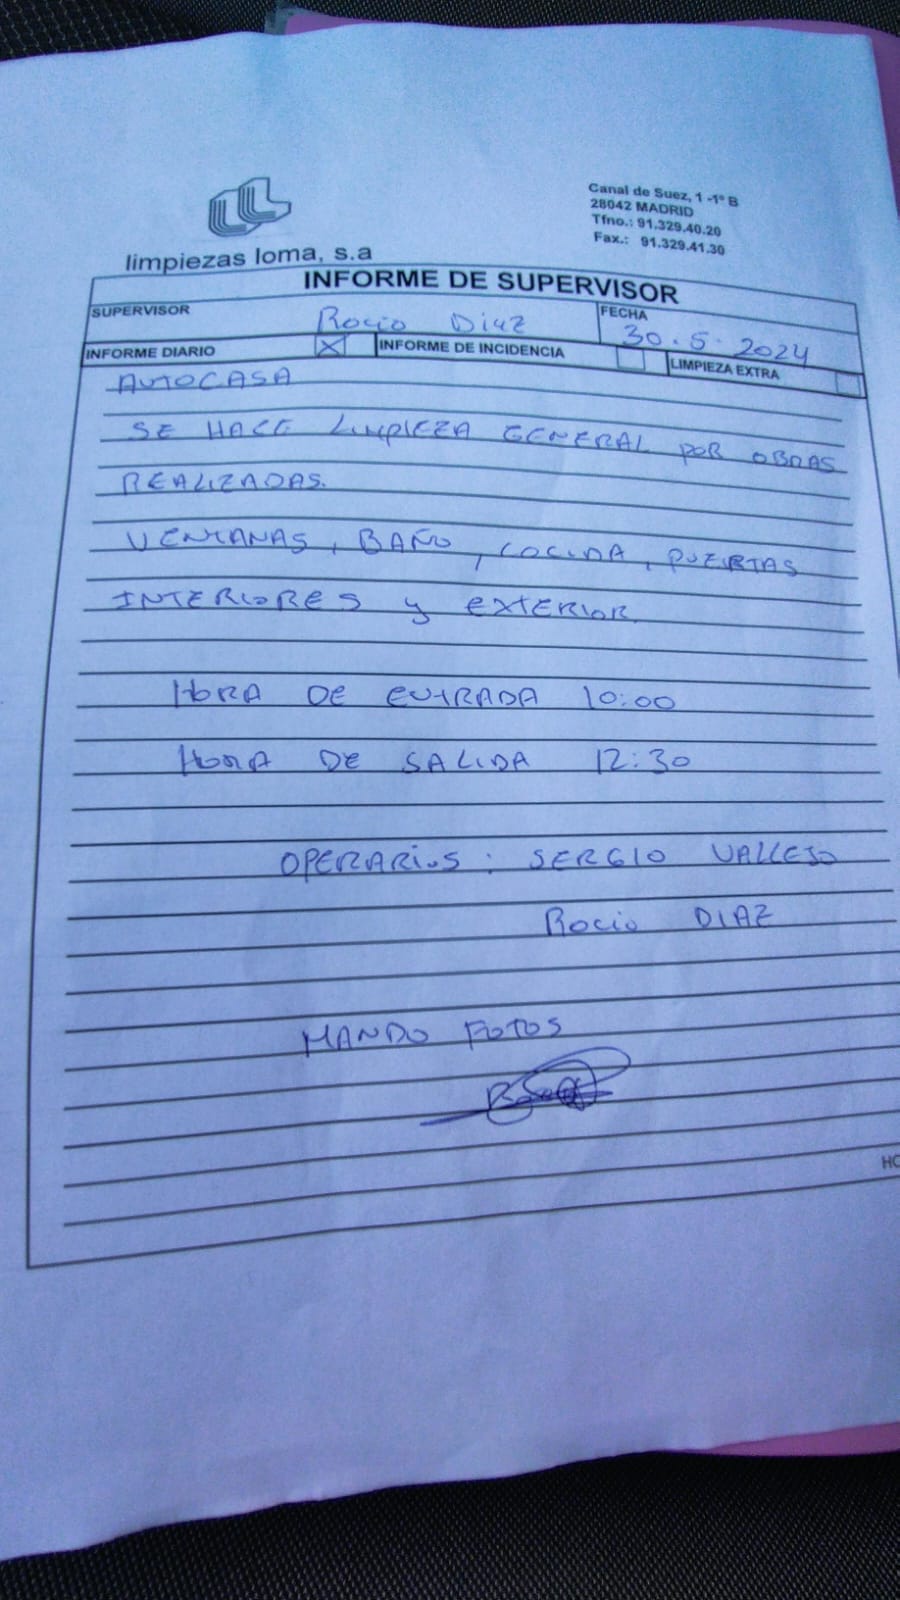 Canal de Suez, 1 -1º B
28042 MADRID
Tfno.: 91.329.40.20
Fax.: 91.329.41.30
limpiezas loma, s.a
INFORME DE SUPERVISOR
SUPERVISOR Rocio Diaz
FECHA 30.5.2024
INFORME DIARIO X INFORME DE INCIDENCIA LIMPIEZA EXTRA
AUTOCASA
SE HACE LIMPIEZA GENERAL POR OBRAS
REALIZADAS.
VENTANAS, BAÑO, COCINA, PUERTAS
INTERIORES y EXTERIOR.
HORA DE ENTRADA 10:00
HORA DE SALIDA 12:30
OPERARIOS: SERGIO VALLEJO
ROCIO DIAZ
MANDO FOTOS